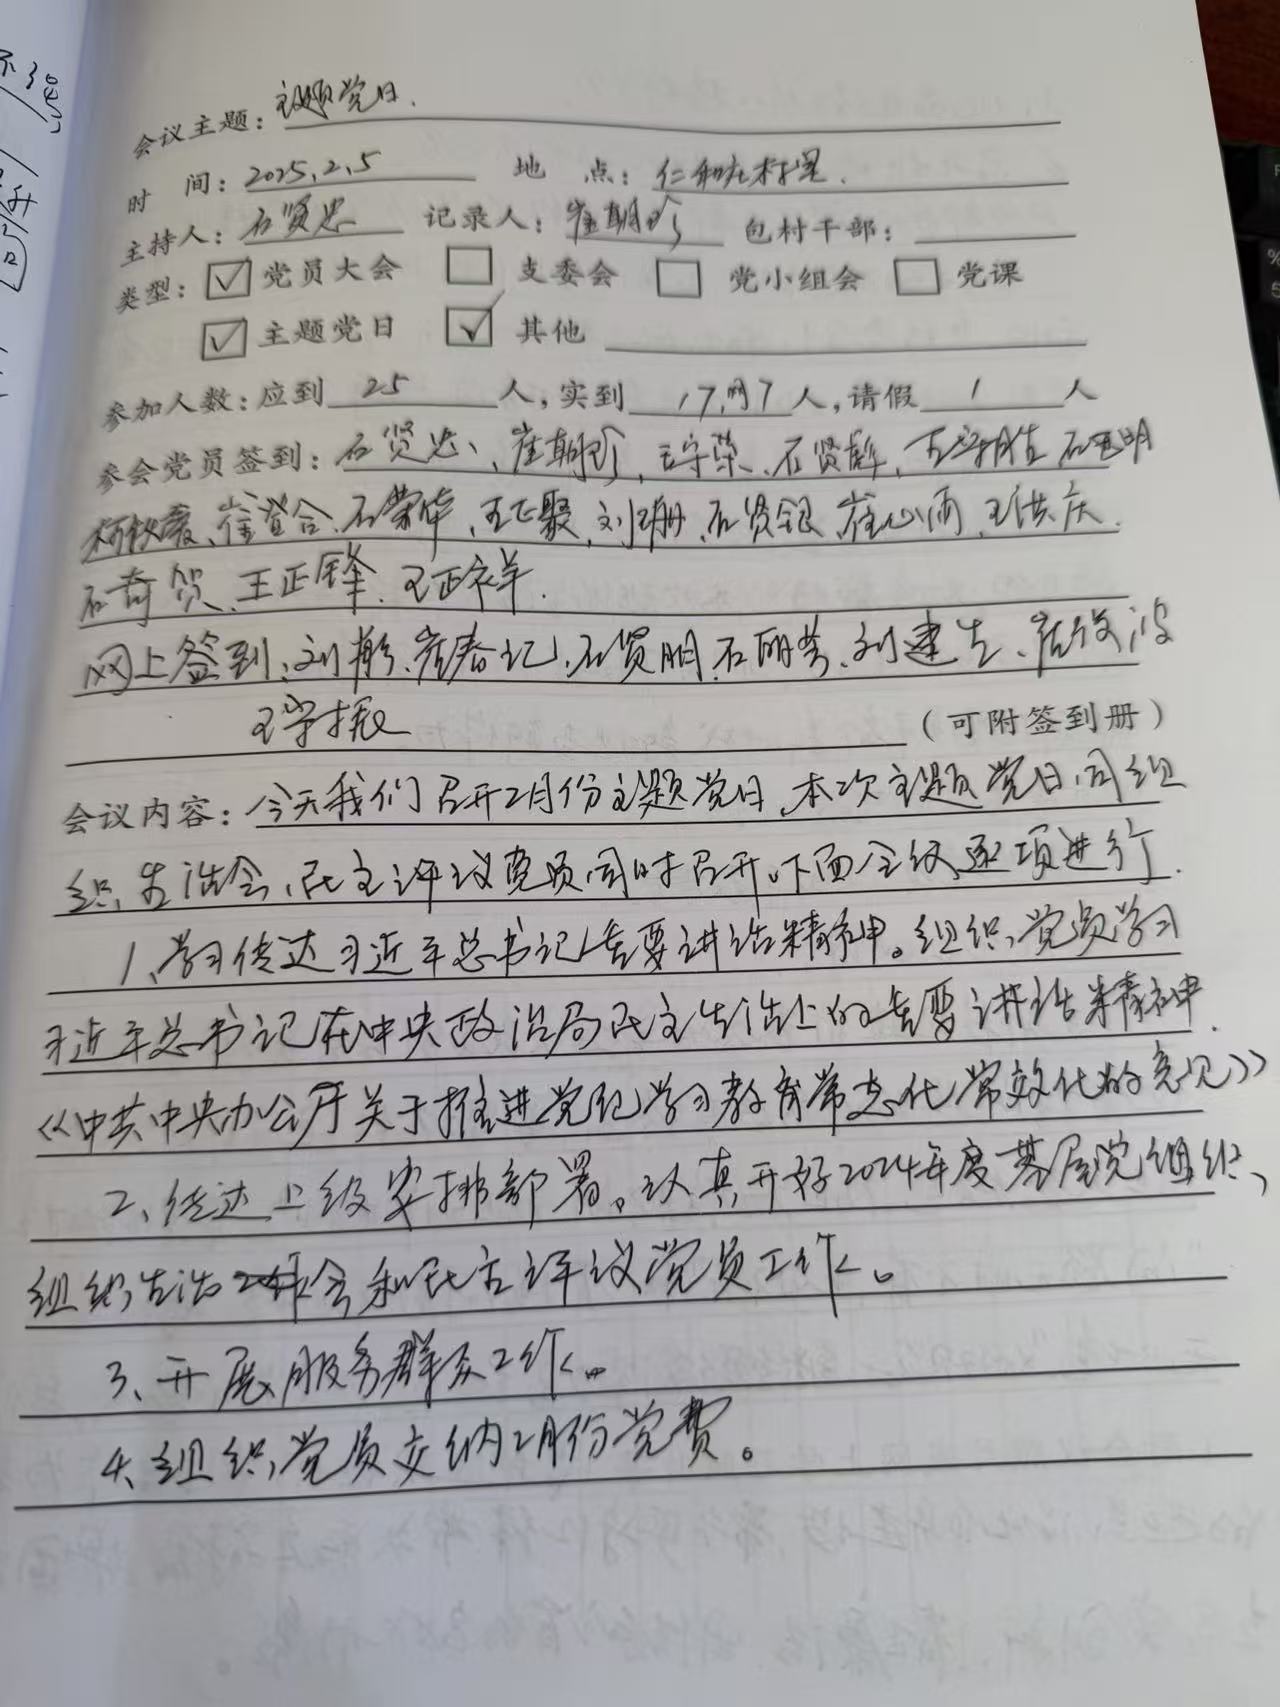 会议主题：主题党日.
时 间：2025.2.5 地 点：仁和左村里.
主持人：石贤忠 记录人：崔朝珍 包村干部：
类型：☑ 党员大会 ☐ 支委会 ☐ 党小组会 ☐ 党课
☑ 主题党日 ☑ 其他
参加人数：应到 25 人，实到 17,网7 人，请假 1 人
参会党员签到：石贤忠、崔朝珍、王守荣、石贤群、石明
崔登合、石荣华、王正聚、刘珊、石贤银、崔心雨、王洪庆.
石奇贺、王正锋、王正祥.
网上签到、刘彬、崔春记、石贤朋、石丽芳、刘建生、崔俊波
王守振 （可附签到册）
会议内容：今天我们召开2月份主题党日，本次主题党日同组
织生活会、民主评议党员同时召开。下面会议逐项进行.
1、学习传达习近平总书记重要讲话精神。组织党员学习
习近平总书记在中央政治局民主生活上的重要讲话精神.
《中共中央办公厅关于推进党纪学习教育常态化常效化的意见》
2、传达上级安排部署。认真开好2024年度基层党组织、
组织生活会和民主评议党员工作。
3、开展服务群众工作。
4、组织党员交纳2月份党费。